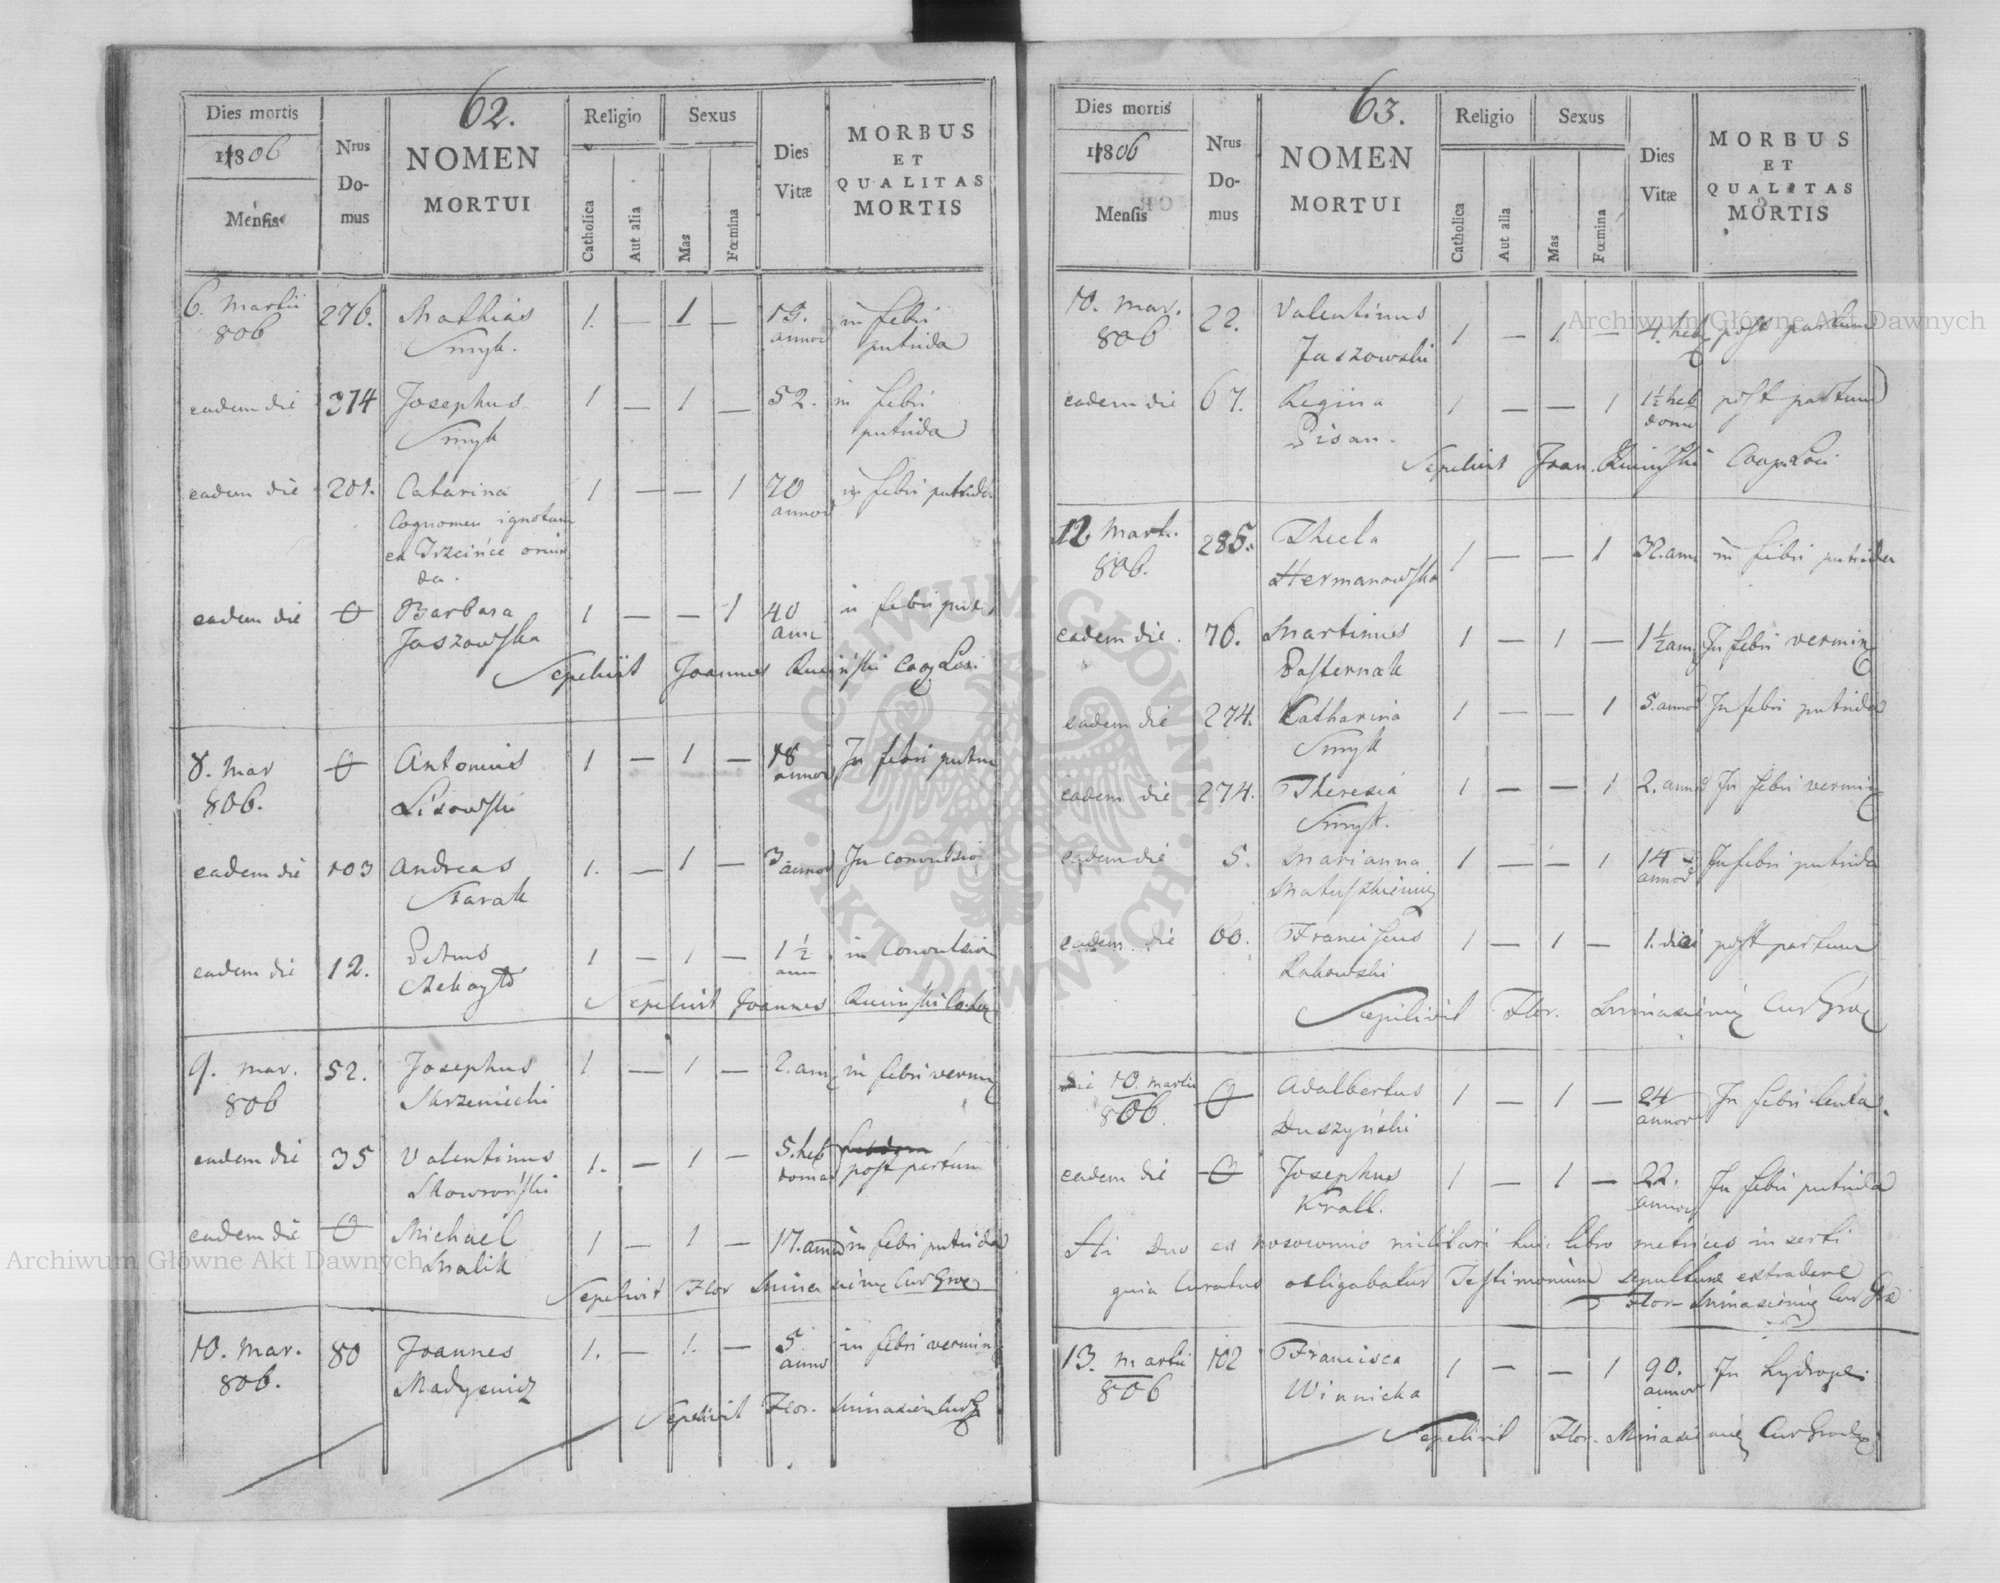 62.
Dies mortis
1806
Mensis
Nrus
Do-
mus
NOMEN
MORTUI
Religio
Catholica
Aut alia
Sexus
Mas
Fœmina
Dies
Vitæ
MORBUS
ET
QUALITAS
MORTIS
6. Martii 276. Mathias 1. — 1 — in febri
806 Smyk. annor putrida
eadem die 374 Josephus 1 — 1 — 52. in febri
Smyk putrida
eadem die 201. Catarina 1 — — 1 70 in febri putrida
Cognomen ignotum annor
ex Trzcińce oriun
da.
eadem die 0 Barbara 1 — — 1 40 in febri putr
Jaszowska ann
Sepelivit Joannes Ruciński Coop Loci
8. Mar 0 Antonius 1 — 1 — 18 In febri putri
806. Lisowski annor
eadem die 103 Andreas 1. — 1 — 3 In convulsio
Starak annor
eadem die 12. Petrus 1 — 1 — 1 1/2 in convulsio
ann
Sepelivit Joannes Ruciński
9. Mar. 52. Josephus 1 — 1 — 2. ann in febri vermin
806 Skrzeniecki
eadem die 35 Valentinus 1. — 1 — 5. heb
Skowroński domad post partum
eadem die 0 Michael 1 — 1 — 17. annor in febri putrida
Malik
Sepelivit Flor
10. Mar. 80 Joannes 1. — 1. — 5 in febri vermin
806. Madysewicz annor
Sepelivit Flor.
63.
Dies mortis
1806
Mensis
Nrus
Do-
mus
NOMEN
MORTUI
Religio
Catholica
Aut alia
Sexus
Mas
Fœmina
Dies
Vitæ
MORBUS
ET
QUALITAS
MORTIS
10. Mar. 22. Valentinus 1 — 1 — 4. heb post partum
806 Jaszowski
eadem die 67. Regina 1 — — 1 1 1/2 heb post partum
Pisan. doma
Sepelivit Joan. Ruciński Coop. Loci
12 Mart. 285. Thecla 1 — — 1 32. ann in febri putrida
806. Hermanowska
eadem die. 76. Martinus 1 — 1 — 1 1/2 ann In febri vermin
Pasternak
eadem die 274. Catharina 1 — — 1 5. annor In febri putrida
Smyk
eadem die 274. Theresia 1 — — 1 2. annor In febri vermin
Smyk.
eadem die 5. Marianna 1 — — 1 14 In febri putrida
annor
eadem die 60. Franciscus 1 — 1 — 1. diei post partum
Rakowski
Sepelivit Flor.
Die 10. Martii 0 Adalbertus 1 — 1 — 24 In febri lenta.
806 Duszyński annor
eadem die 0 Josephus 1 — 1 — 22. In febri putrida
Krall. annor
Hi duo ex nosocomio militari huic libro metrices inserti
quia Curatus obligabatur Testimonium sepulturæ extradere
Flor
13. Martii 102 Francisca 1 — — 1 90. In hydrope
806 Winnicka annor
Sepelivit Flor.
Archiwum Główne Akt Dawnych
Archiwum Główne Akt Dawnych
ARCHIWUM GŁÓWNE · AKT DAWNYCH ·